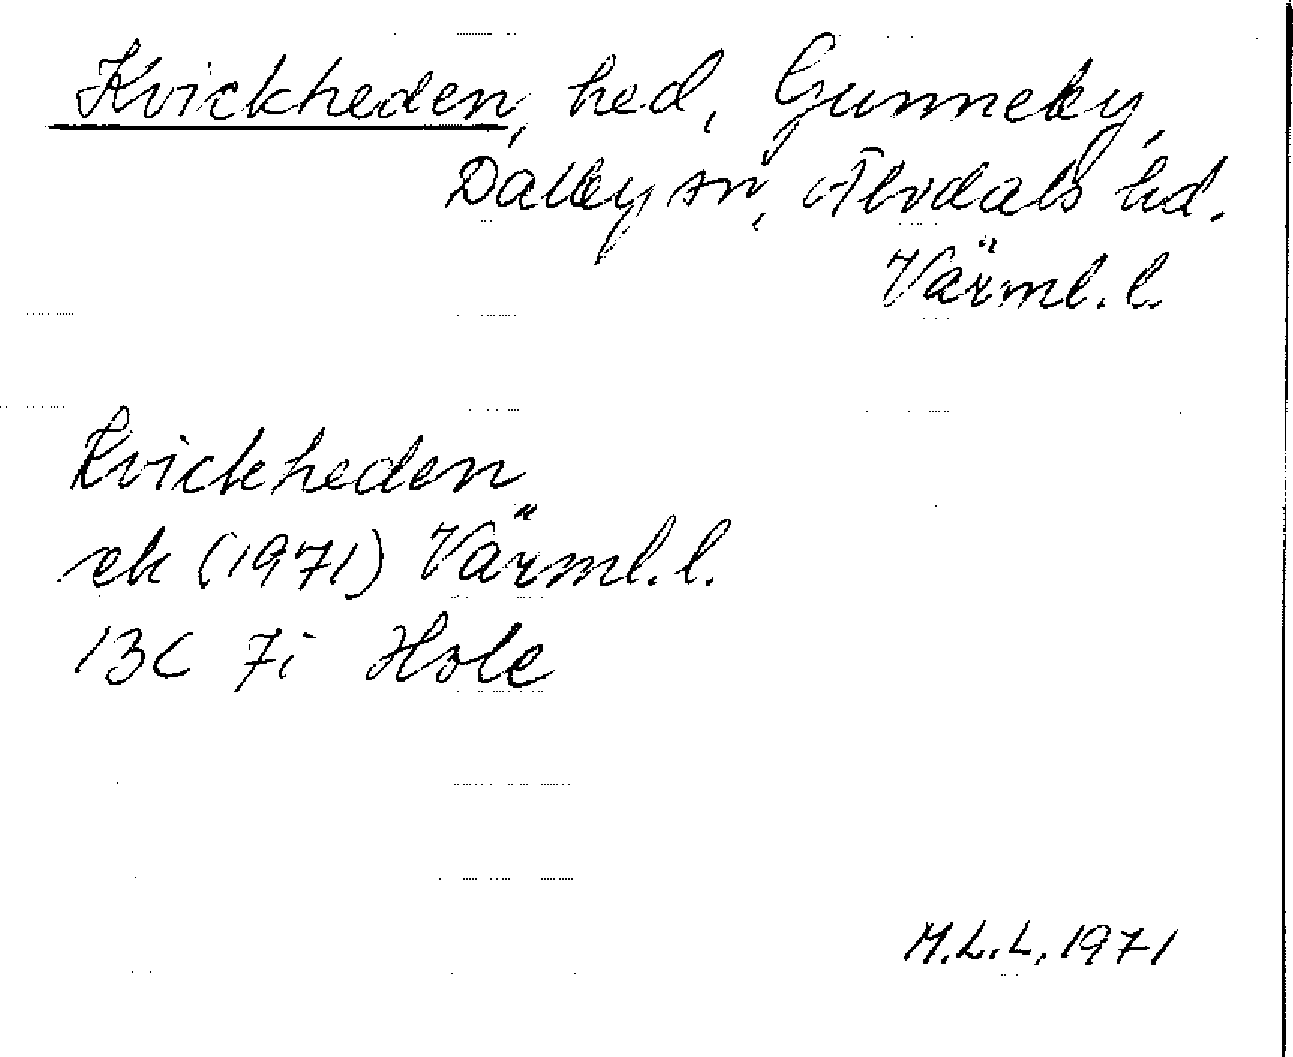 Kvickheden, hed, Gunneby,
Dalby sn, Älvdals hd.
Värml. l.
Kvickheden
ek (1971) Värml. l.
13C 7i Hole
M.L.L. 1971